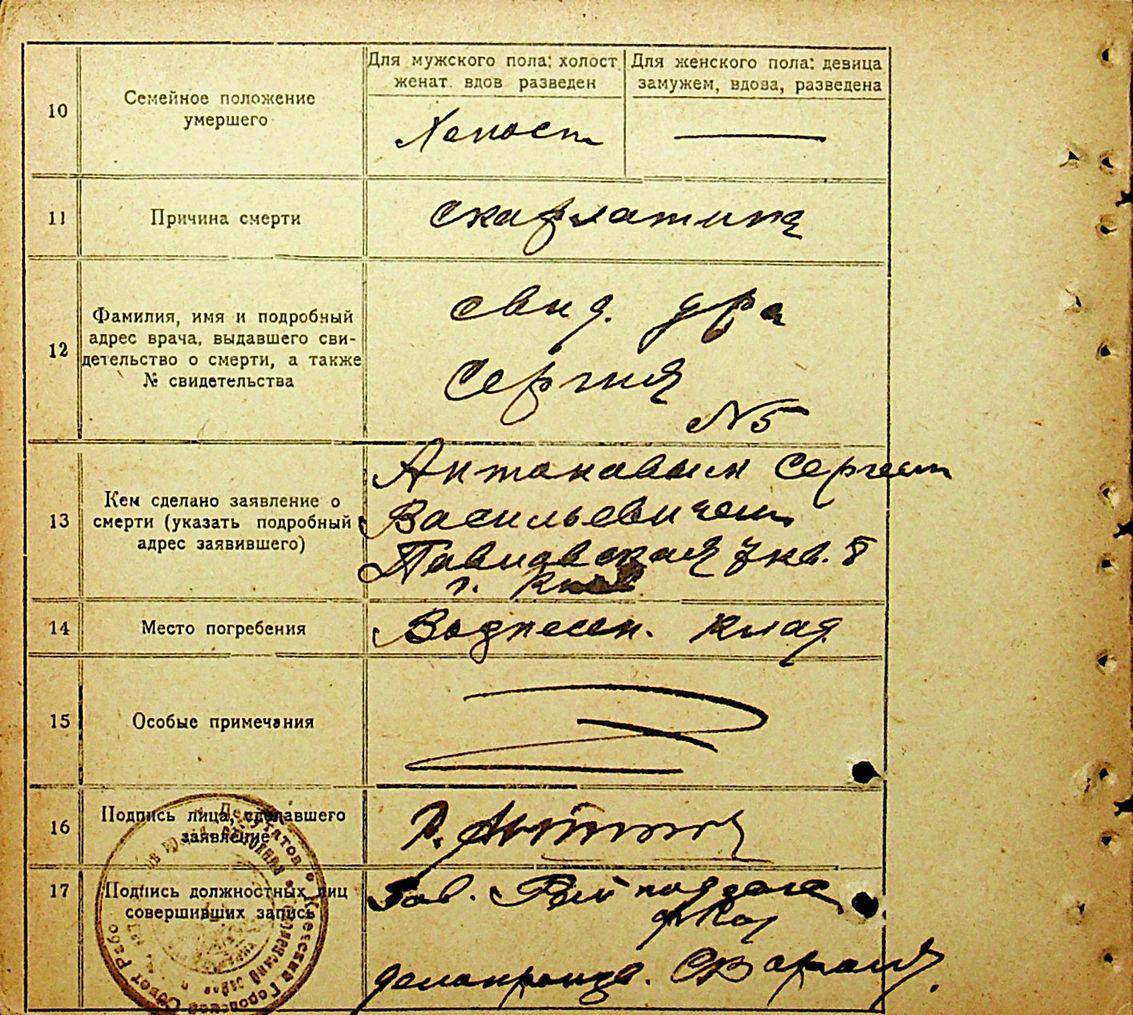 Для мужского пола: холост
женат вдов разведен
Для женского пола: девица
замужем, вдова, разведена
10
Семейное положение
умершего
Холост
11
Причина смерти
скарлатина
12
Фамилия, имя и подробный
адрес врача, выдавшего сви-
детельство о смерти, а также
№ свидетельства
свид. д-ра
Сергия
№5
13
Кем сделано заявление о
смерти (указать подробный
адрес заявившего)
Антоновым Сергеем
Васильевичем
Павловская 7 кв. 8
г.
14
Место погребения
Вознесен. клад.
15
Особые примечания
16
Подпись лица, сделавшего
заявление
17
Подпись должностных лиц
совершивших запись
Зав.
делопроизв.
Киевский Городской Совет Рабо
Депутатов